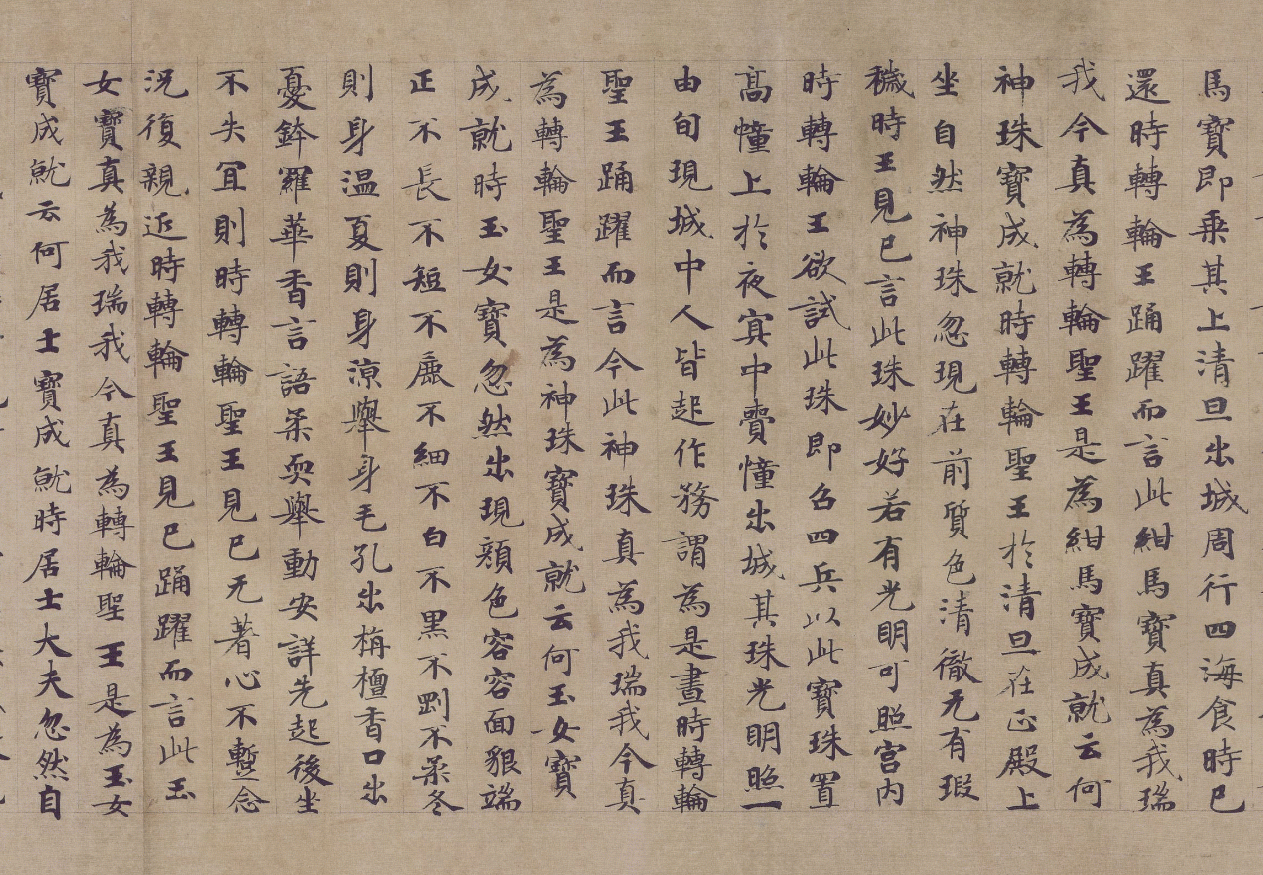 馬寶即乗其上清旦出城周行四海食時已
還時轉輪王踊躍而言此紺馬寶真為我瑞
我今真為轉輪聖王是為紺馬寶成就云何
神珠寶成就時轉輪聖王於清旦在正殿上
坐自然神珠忽現在前質色清徹无有瑕
穢時王見已言此珠妙好若有光明可照宫内
時轉輪王欲試此珠即召四兵以此寶珠置
髙幢上於夜㝠中賷幢出城其珠光明照一
由旬現城中人皆起作務謂為是晝時轉輪
聖王踊躍而言今此神珠真為我瑞我今真
為轉輪聖王是為神珠寶成就云何玉女寶
成就時玉女寶忽然出現顔色容容面貇端
正不長不短不麁不細不白不黒不剛不柔冬
則身温夏則身涼舉身毛孔出栴檀香口出
憂鉢羅華香言語柔耎舉動安詳先起後坐
不失冝則時轉輪聖王見已无著心不蹔念
況復親近時轉輪聖王見已踊躍而言此玉
女寶真為我瑞我今真為轉輪聖王是為玉女
寶成就云何居士寶成就時居士大夫忽然自